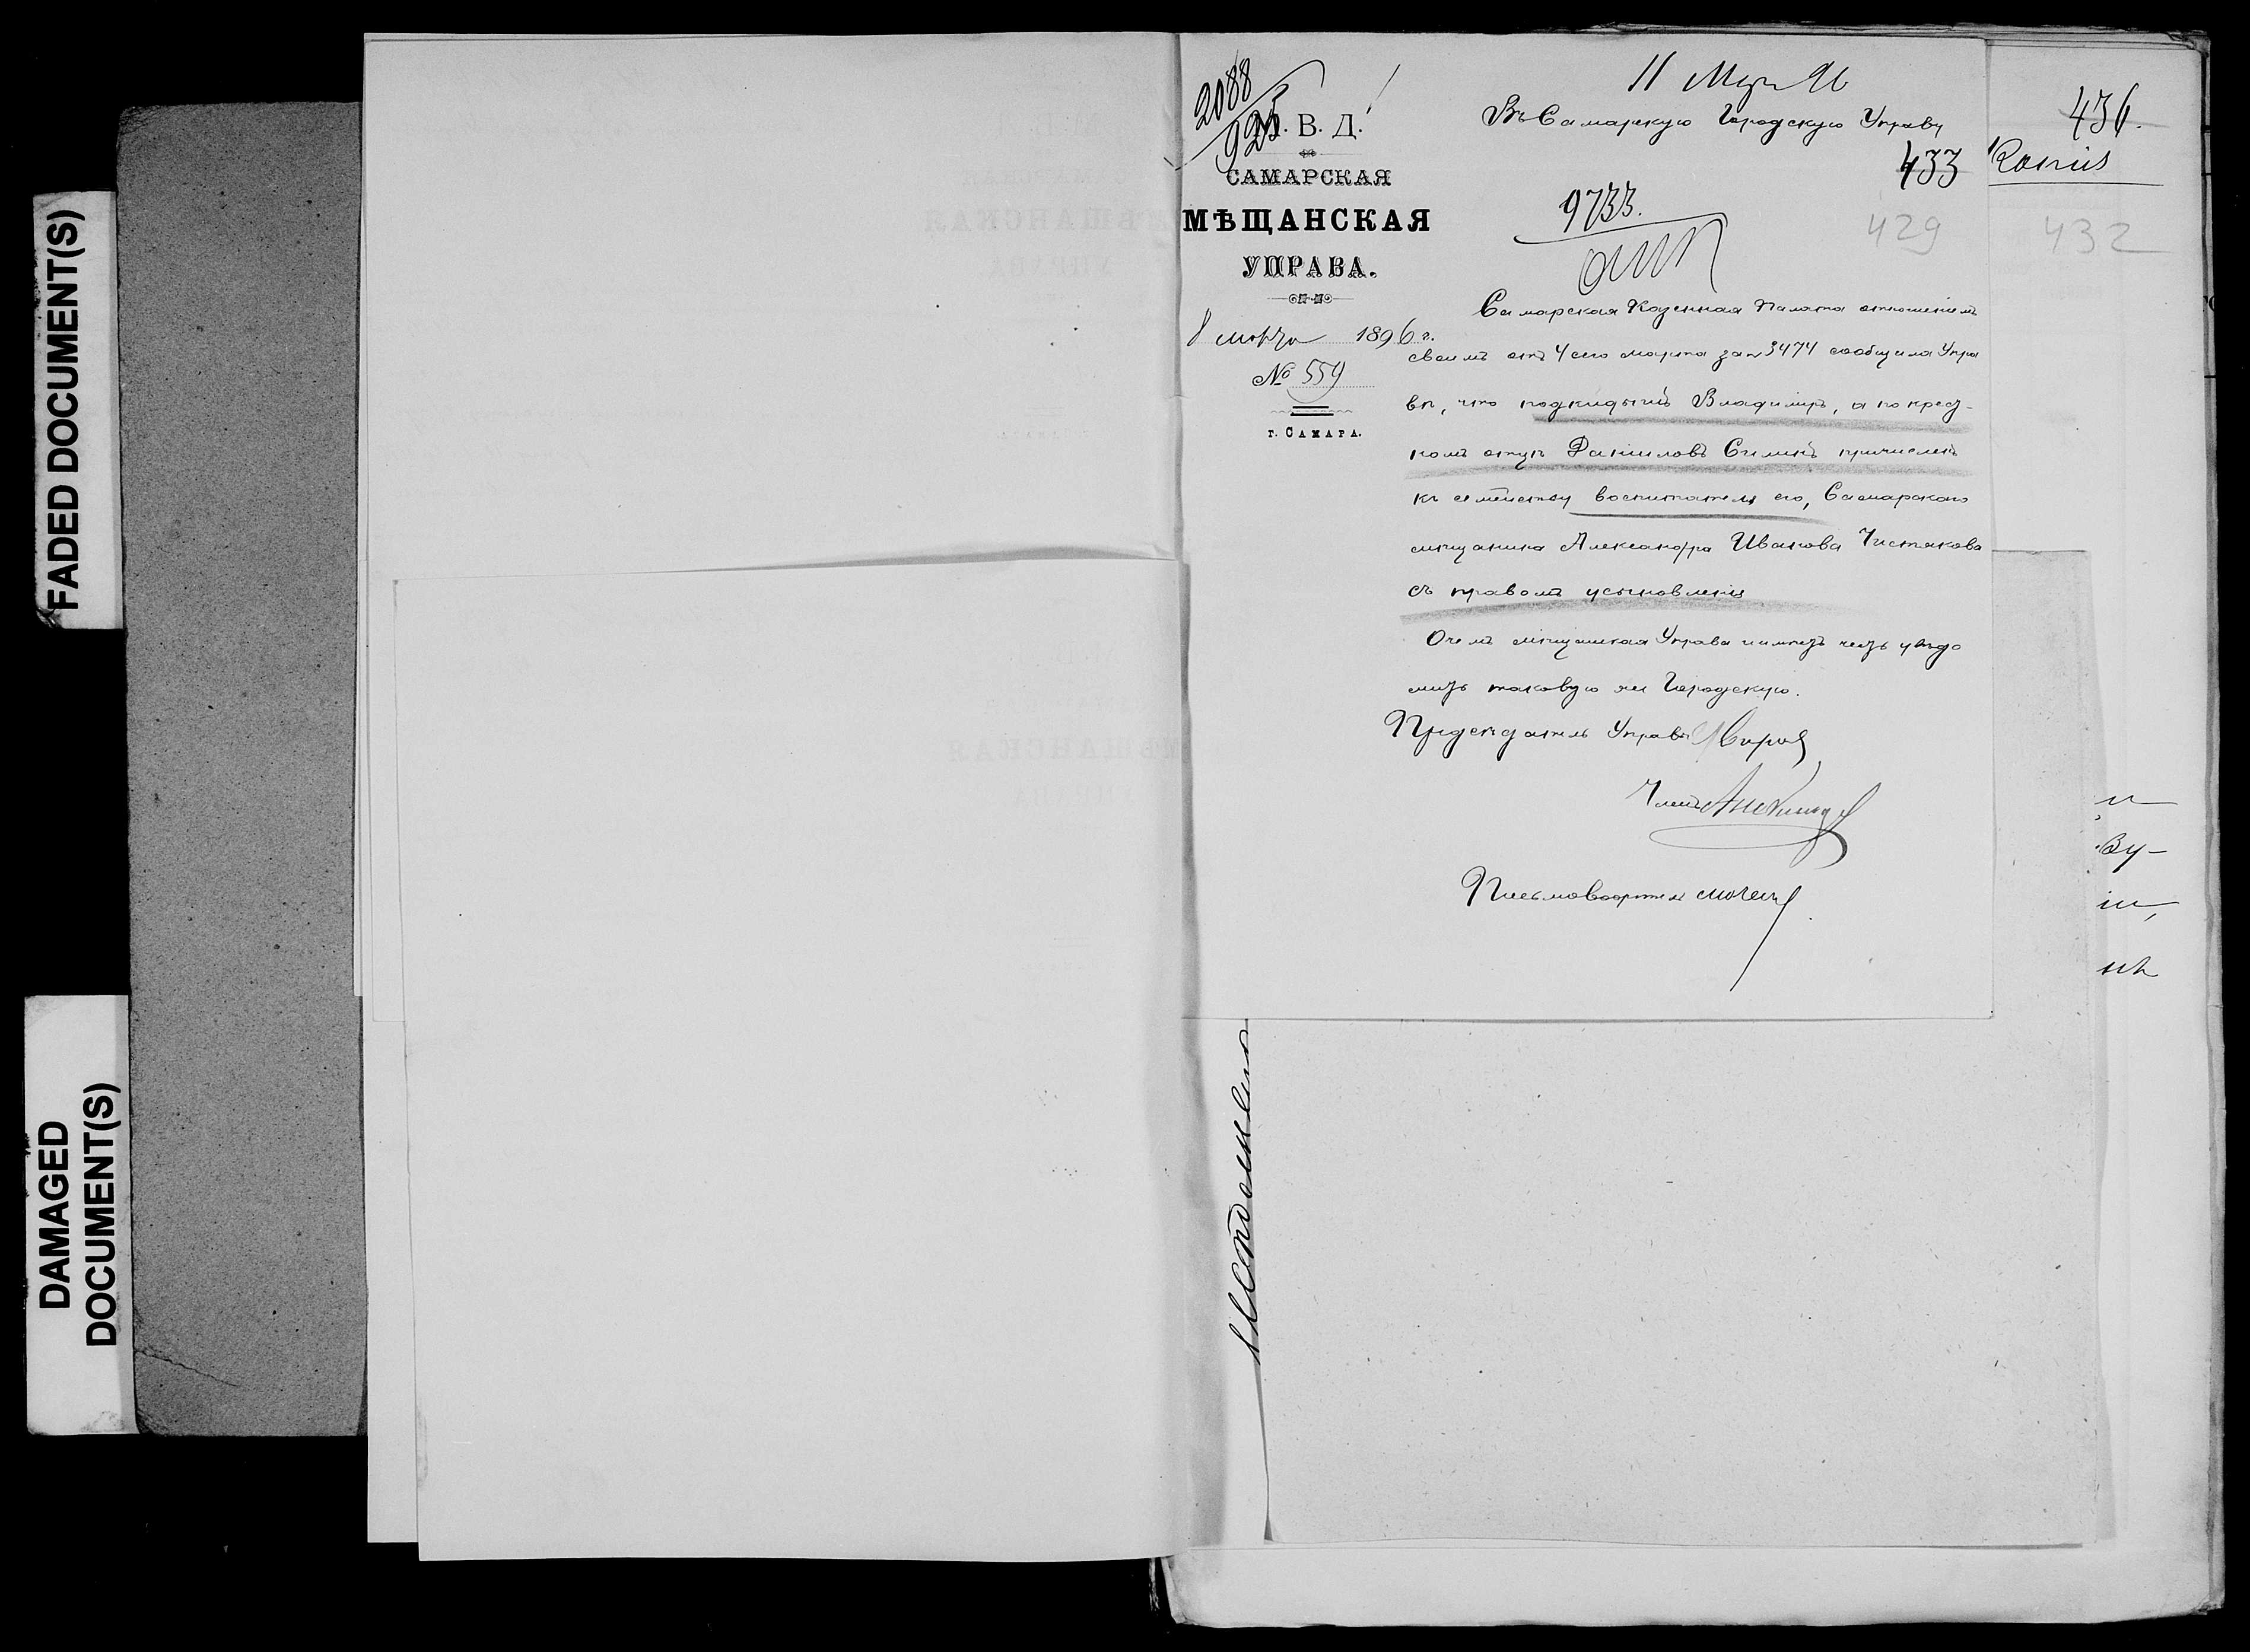 FADED DOCUMENT(S)
DAMAGED
DOCUMENT(S)
2088
923
М. В. Д.
САМАРСКАЯ
МѢЩАНСКАЯ
УПРАВА.
8 марта 1896 г.
№ 559
г. САМАРА.
11 Мар 96
Въ Самарскую Городскую Управу
433
9733.
429
Самарская Казенная Палата отношеніемъ
своимъ отъ 4 сего марта за № 3474 сообщила Упра
вѣ, что подкидышъ Владиміръ, а по крест-
ному отцу Даниловъ Силинъ причисленъ
къ семейству воспитателя его, Самарскаго
мѣщанина Александра Иванова Чистякова
съ правомъ усыновленія
О чемъ мѣщанская Управа имѣетъ честь увѣдо
мить таковую же Городскую.
Предсѣдатель Управы
Членъ
Письмоводитель
436.
Копія
432
ву-
іи,